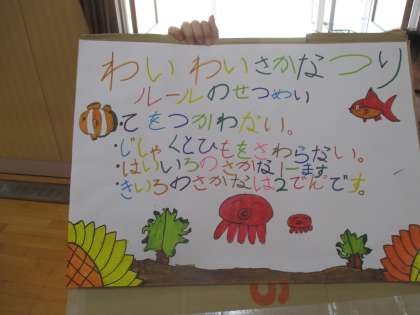 わいわいさかなつり
ルールのせつめい
・てをつかわない。
・じしゃくとひもをさわらない。
・はいいろのさかな1ーます
・きいろのさかなは2てんです。